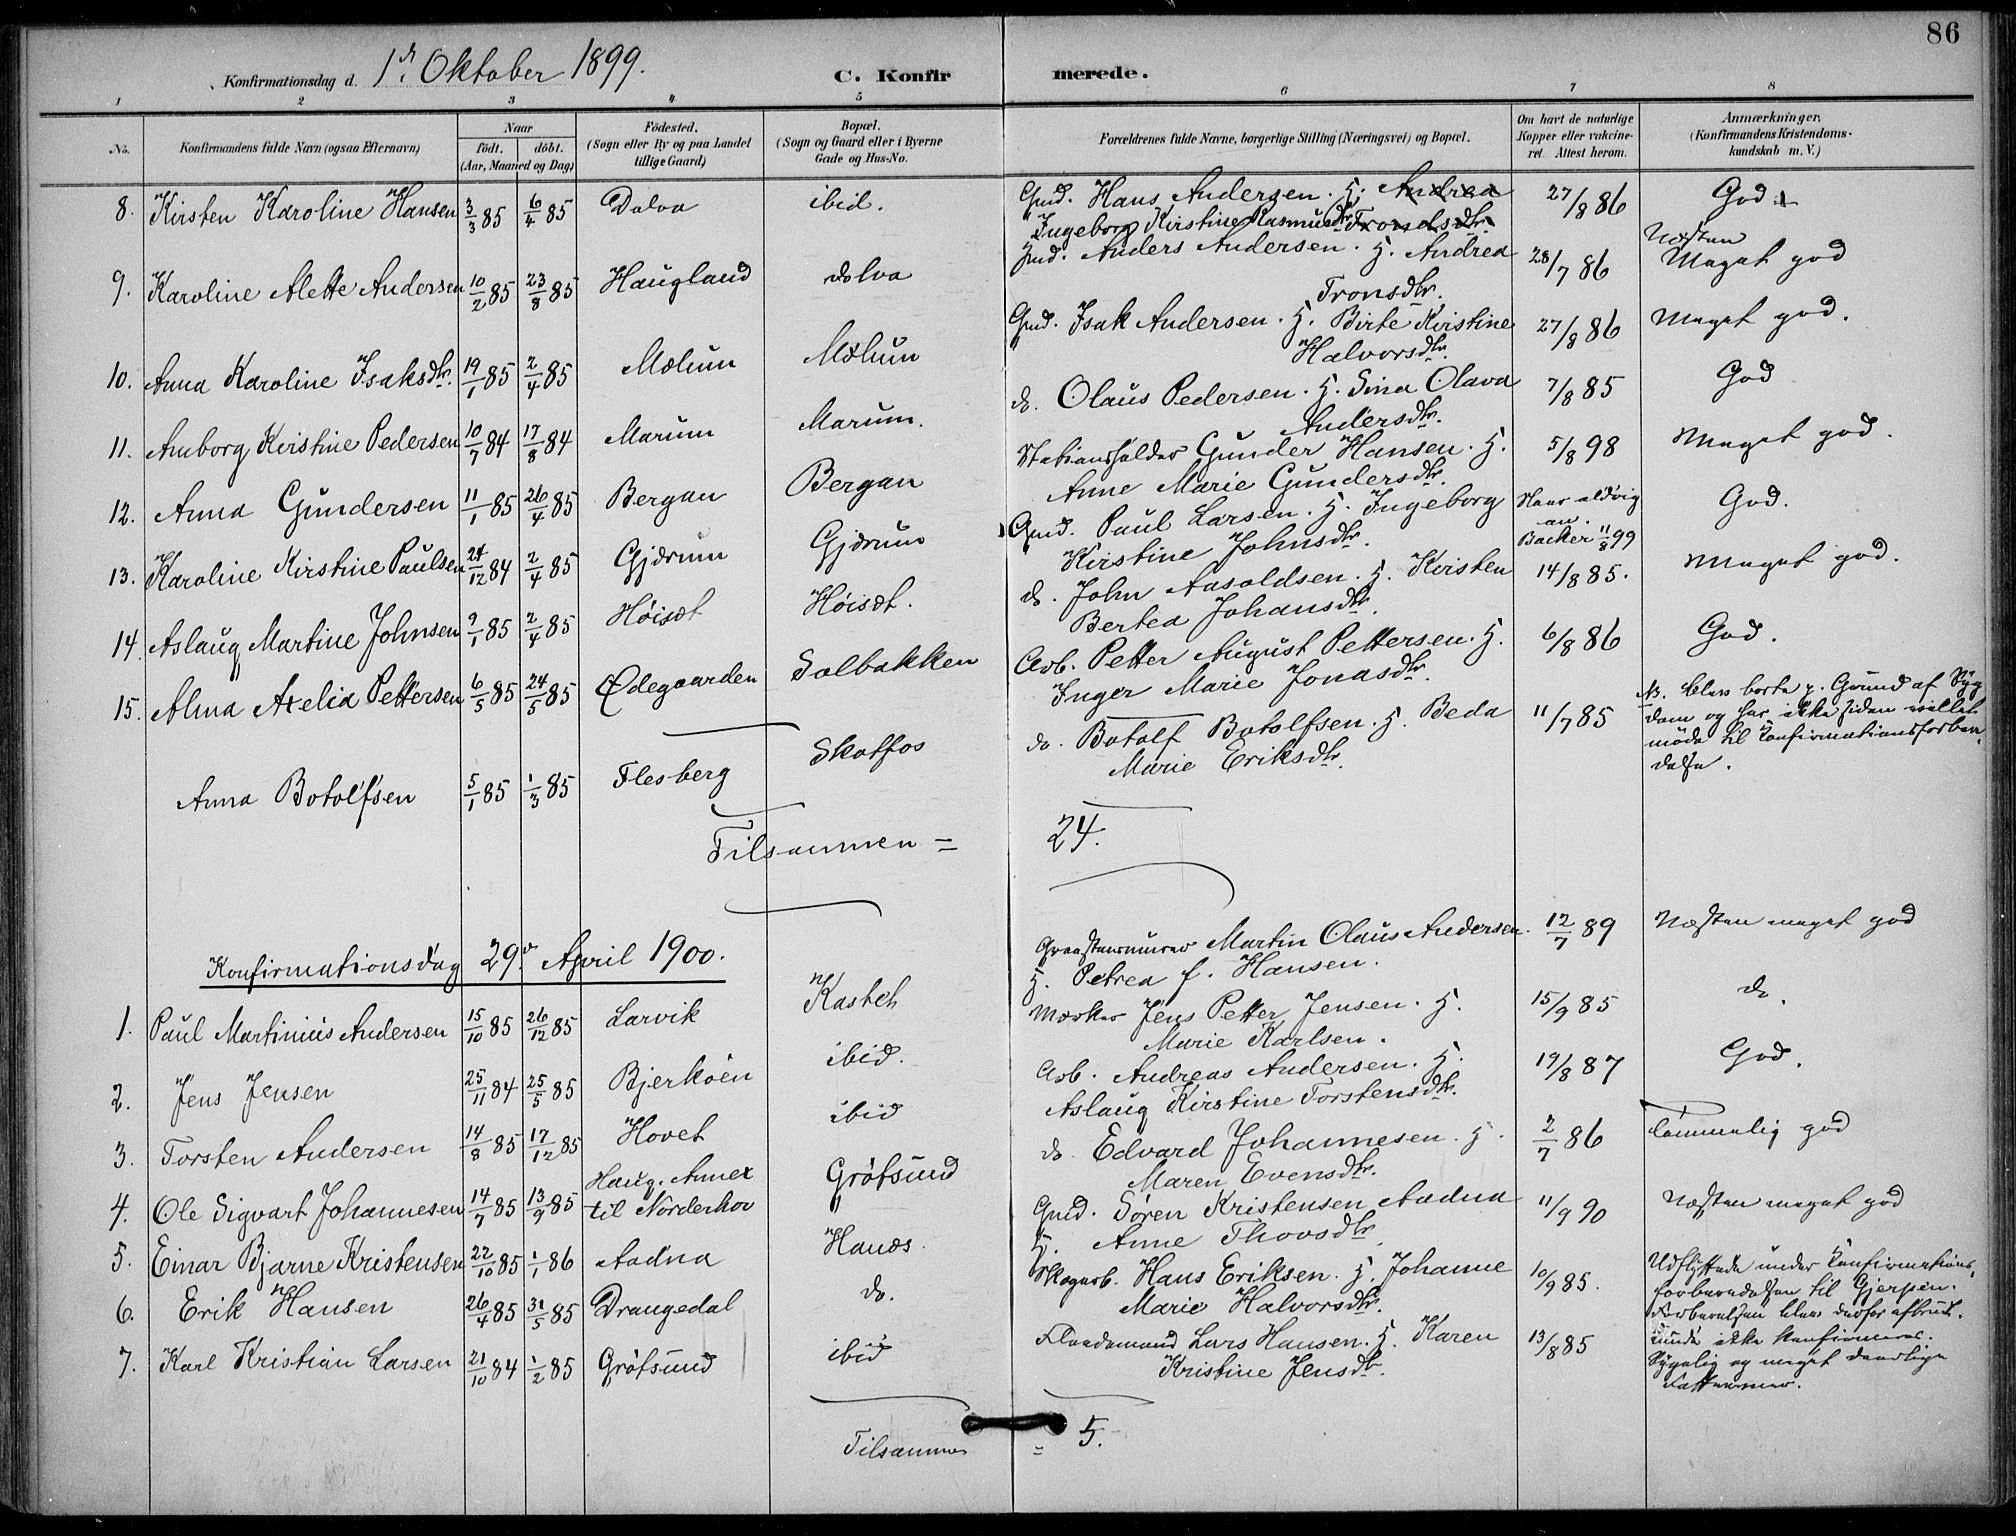 86
Konfirmationsdag d. 1ste Oktober 1899. C. Konfirmerede.
1 2 3 4 5 6 7 8
No. Konfirmandens fulde Navn (ogsaa Efternavn) Naar født. døbt. (Aar, Maaned og Dag) Fødested. (Sogn eller By og paa Landet tillige Gaard) Bopæl. (Sogn og Gaard eller i Byerne Gade og Hus-No. Forældrenes fulde Navne, borgerlige Stilling (Næringsvei) og Bopæl. Om havt de naturlige Kopper eller vakcineret. Attest herom. Anmærkninger, (Konfirmandens Kristendomskundskab m. V.)
8. Kirsten Karoline Hansen 3/3 85 6/4 85 Dalva ibid. Gmd. Hans Andersen. H. Andrea Trondsdtr. Ingeborg Kirstine Rasmusdtr 27/8 86 God
9. Karoline Alette Andersen 10/2 85 23/8 85 Haugland dalva Gmd. Anders Andersen. H. Andrea Tronsdtr. 28/7 86 Næsten Meget god
10. Anna Karoline Isaksdtr. 19/1 85 2/4 85 Mælum Mælum Gmd. Isak Andersen. H. Birte Kirstine Halvorsdtr. 27/8 86 Meget god.
11. Amborg Kirstine Pedersen 10/7 84 17/8 84 Marum Marum. do. Olaus Pedersen. H. Sina Olava Andersdtr. 7/8 85 God
12. Anna Gundersen 11/1 85 26/4 85 Bergan Bergan Stationsholder Gunder Hansen. H. Anne Marie Gundersdtr. 5/8 98 Meget god.
13. Karoline Kirstine Paulsen 24/12 84 2/4 85 Gjærum Gjærum Gmd. Paul Larsen. H. Ingeborg Kirstine Johnsdtr. Backer 11/8 99 God.
14. Aslaug Martine Johnsen 9/1 85 2/4 85 Høisæt Høisæt. do. John Aasoldsen. H. Kirsten Bertea Johansdtr. 14/8 85. Meget god.
15. Alma Axelia Pettersen 6/5 85 24/5 85 Ødegaarden Solbakken Arb. Petter August Pettersen. H. Inger Marie Jonasdtr. 6/8 86 God.
Anna Botolfsen 5/1 85 1/3 85 Flesberg Skotfos do. Botolf Botolfsen. H. Beda Marie Eriksdtr. 11/7 85 N. blev borte p. Grund af Sygdom og har ikke siden villet møde til Konfirmationsforberedelse.
Tilsammen = 24.
Konfirmationsdag 29de April 1900.
1. Paul Martinius Andersen 15/10 85 26/12 85 Larvik Kastet Graastensmurer Martin Olaus Andersen. H. Petrea f. Hansen. 12/7 89 Næsten meget god
2. Jens Jensen 25/11 84 25/5 85 Bjerkøen ibid. Mærker Jens Petter Jensen. H. Marie Karlsen. 15/9 85 do.
3. Torsten Andersen 14/8 85 17/12 85 Hovet ibid Arb. Andreas Andersen. H. Aslaug Kirstine Torstensdtr. 19/8 87 God.
4. Ole Sigvart Johannesen 14/7 85 13/9 85 Haug. Annex til Norderhov Grøtsund do. Edvard Johannesen. H. Maren Evensdtr. 2/7 86 Temmelig god
5. Einar Bjarne Kristensen 22/10 85 1/1 86 Aadna Hanæs. Gmd. Søren Kristensen Aadna H. Anne Thovsdtr. 11/9 90 Næsten meget god
6. Erik Hansen 26/4 85 31/5 85 Drangedal do. Skogarb. Hans Eriksen. H. Johanne Marie Halvorsdtr. 10/9 85. Udflyttede under Konfirmationsforberedelsen til Gjerpen. Forberedelsen blev derfor afbrudt.
7. Karl Kristian Larsen 21/10 84 1/2 85 Grøtsund ibid Flaademand Lars Hansen. H. Karen Kristine Jensdtr. 13/8 85 Kunde ikke konfirmeres. Sygelig og meget daarlige Fatteevner.
Tilsammen = 5.